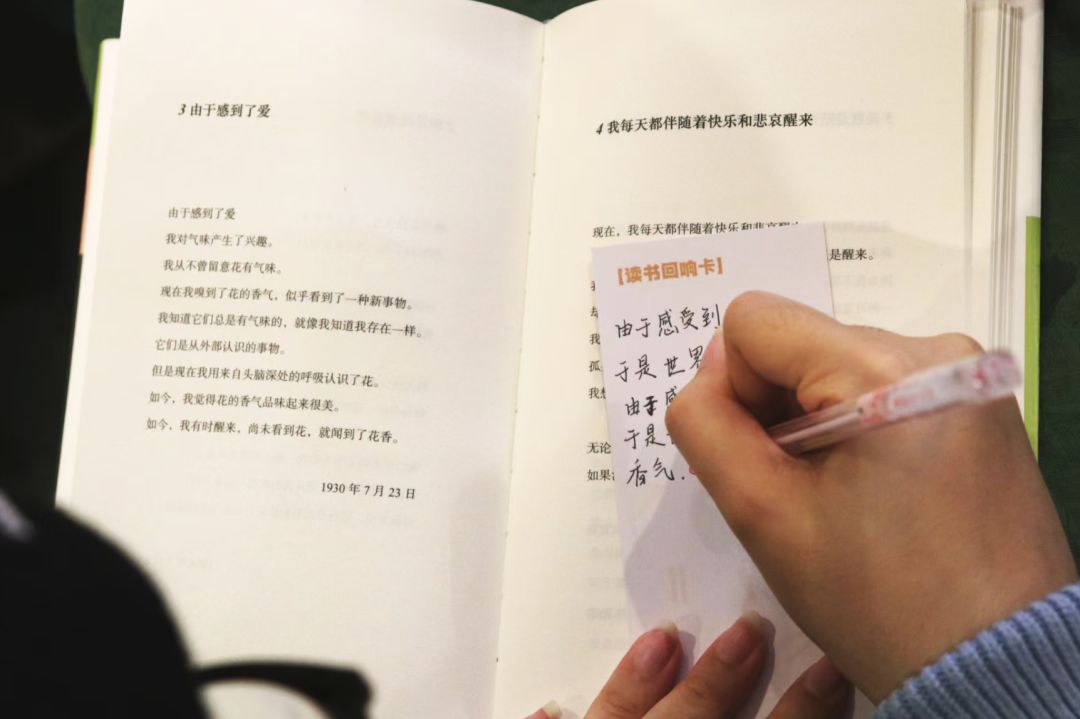 3 由于感到了爱
由于感到了爱
我对气味产生了兴趣。
我从不曾留意花有气味。
现在我嗅到了花的香气，似乎看到了一种新事物。
我知道它们总是有气味的，就像我知道我存在一样。
它们是从外部认识的事物。
但是现在我用来自头脑深处的呼吸认识了花。
如今，我觉得花的香气品味起来很美。
如今，我有时醒来，尚未看到花，就闻到了花香。
1930 年 7 月 23 日
4 我每天都伴随着快乐和悲哀醒来
现在，我每天都伴随着快乐和悲哀
是醒来。
我
孤
我
无论
如果
【读书回响卡】
由于感受到
于是世界
由于
于是
香气.